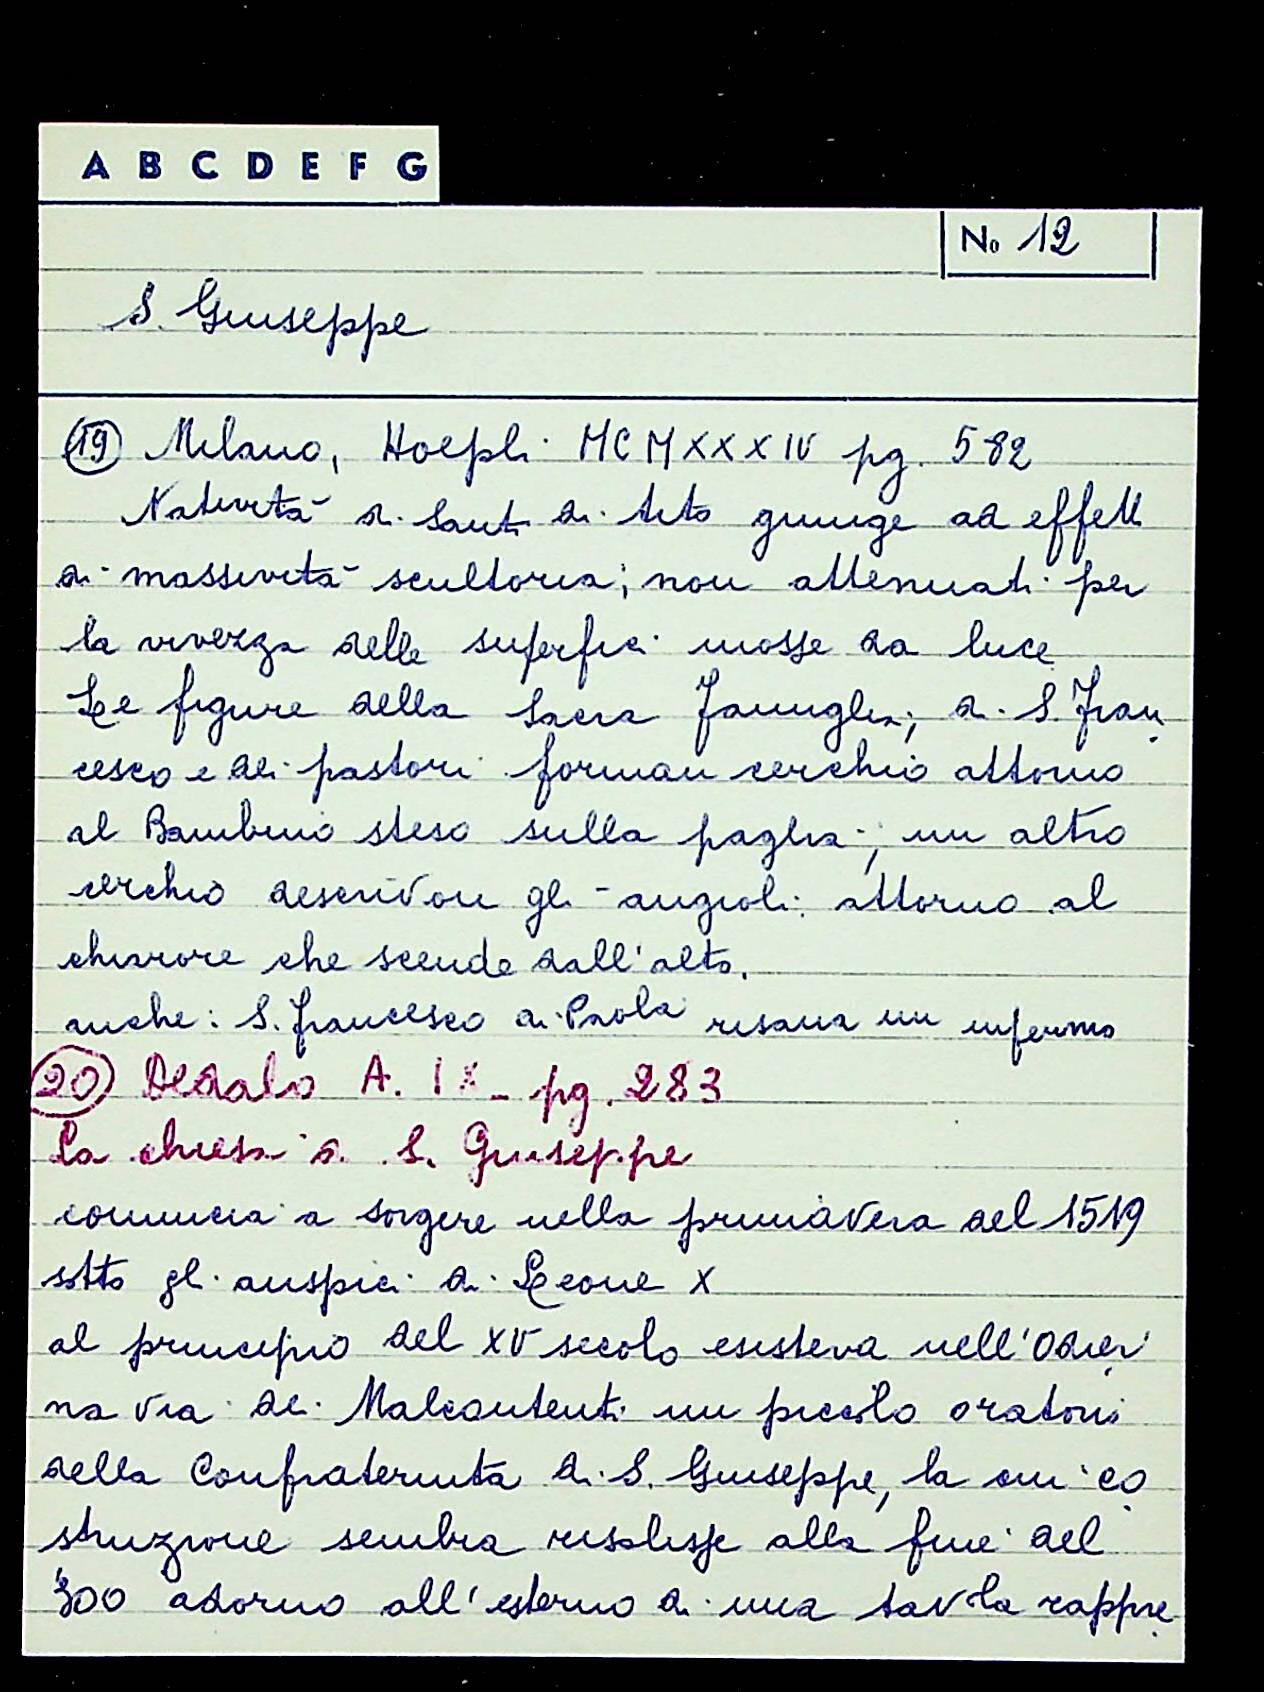 A B C D E F G
No 12
S. Giuseppe
19 Milano, Hoepli MCMXXXIV pg. 582
Natività di Santi di Tito giunge ad effetti
di massività scultoria; non attenuati per
la vivezza delle superfici mosse da luce
Le figure della Sacra Famiglia, di S. Fran
cesco e dei pastori forman cerchio attorno
al Bambino steso sulla paglia; un altro
cerchio descrivon gli angioli attorno al
chiarore che scende dall'alto.
anche: S. Francesco di Paola risana un infermo
20 Dedalo A. IX - pg. 283
La chiesa di S. Giuseppe
comincia a sorgere nella primavera del 1519
sotto gli auspici di Leone X
al principio del XV secolo esisteva nell'odier
na via dei Malcontenti un piccolo oratorio
della Confraternita di S. Giuseppe, la cui co
struzione sembra risalisse alla fine del
'300 adorno all'esterno di una tavola rappre